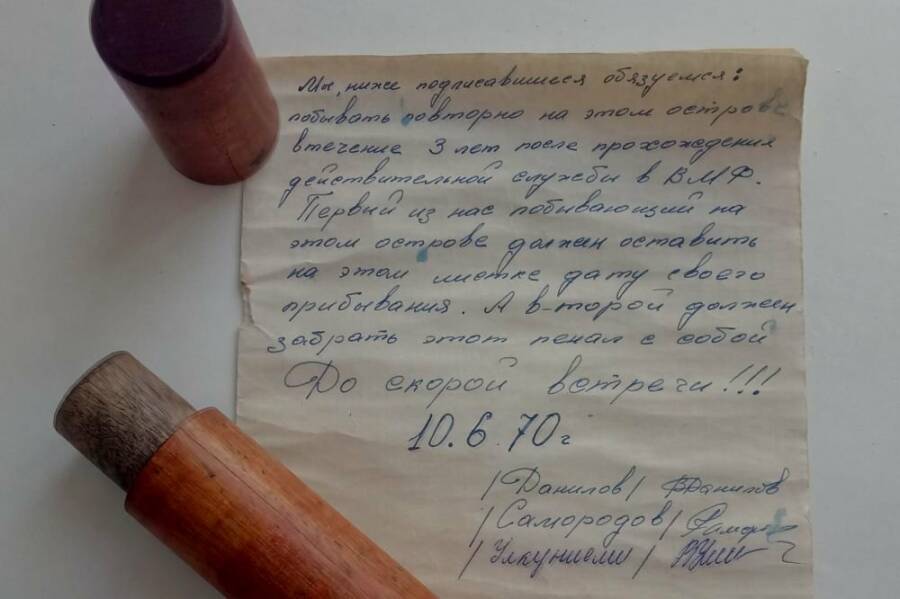 Мы, ниже подписавшиеся обязуемся:
побывать повторно на этом острове
втечение 3 лет после прохождения
действительной службы в ВМФ.
Первый из нас побывающий на
этом острове должен оставить
на этом листке дату своего
прибывания. А в-торой должен
забрать этот пенал с собой
До скорой встречи!!!
10.6.70г
/Данилов/ Данилов
/Самородов/